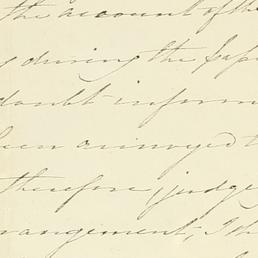 the account of the
during the
doubt inform
been annoyed t
therefore judge
rangement, I th